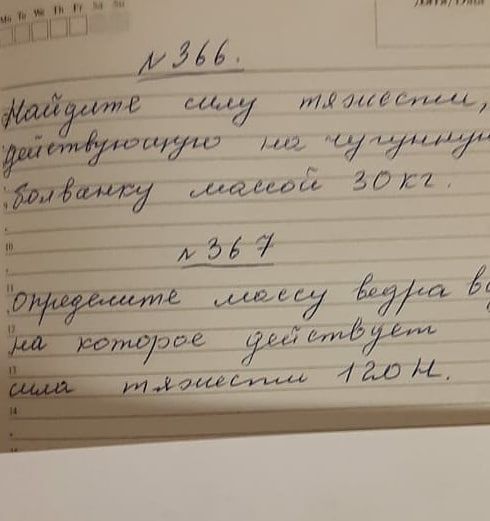 Mo Tu We Th Fr Sa Su
№ 366.
Найдите силу тяжести,
действующую на чугунную
болванку массой 30 кг.
10
№ 367
11
Определите массу ведра
12
на которое действует
13
сила тяжести 120 Н.
14